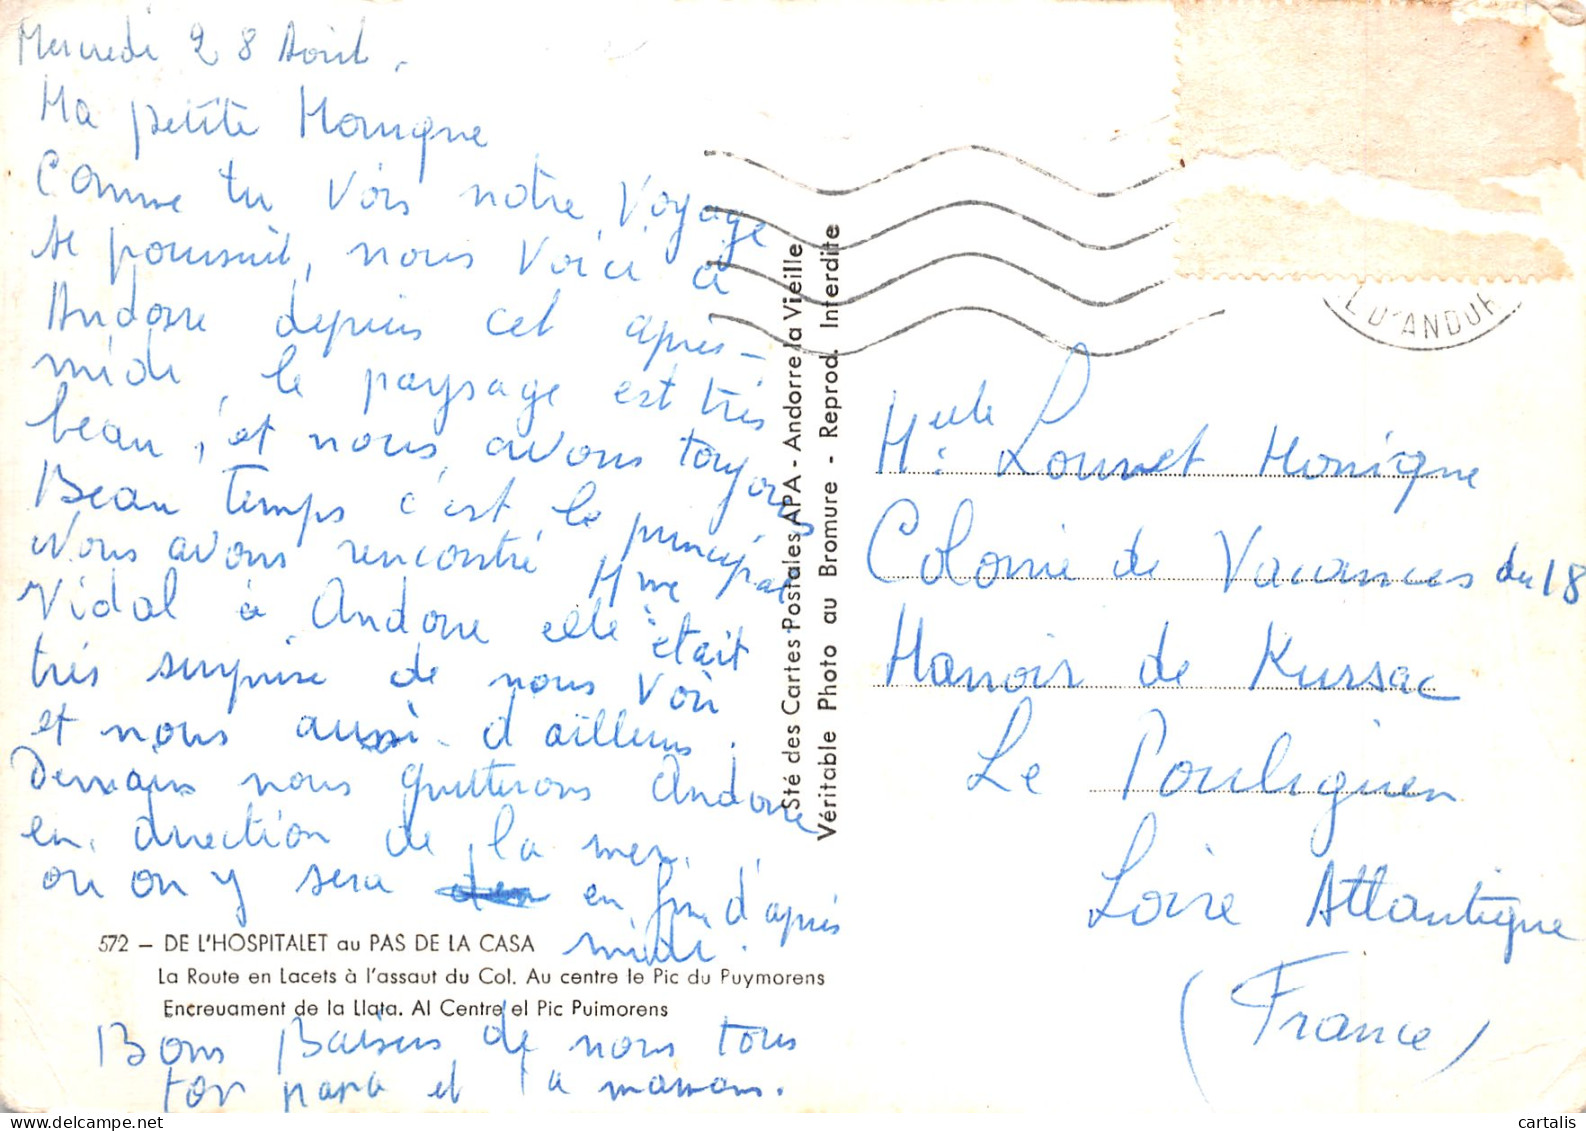 Mercredi 28 Août.
Ma petite Monique
Comme tu vois notre voyage
se poursuit, nous voici à
Andorre depuis cet après-
midi, le paysage est très
beau, et nous avons toujours
Beau temps c'est le principal
Nous avons rencontré Mme
Vidal à Andorre elle était
très surprise de nous voir
et nous aussi d'ailleurs.
Demain nous quitterons Andorre
en direction de la mer.
où on y sera en fin d'après
midi.
572 – DE L'HOSPITALET au PAS DE LA CASA
La Route en Lacets à l'assaut du Col. Au centre le Pic du Puymorens
Encreuament de la Llata. Al Centre el Pic Puimorens
Bons Baisers de nous tous
ton papa et ta maman.
Sté des Cartes Postales APA - Andorre la Vieille
Véritable Photo au Bromure - Reprod. Interdite
L D'ANDOR
Melle Louvet Monique
Colonie de Vacances du 18
Manoir de Kursac
Le Pouliguen
Loire Atlantique
(France)
cartalis